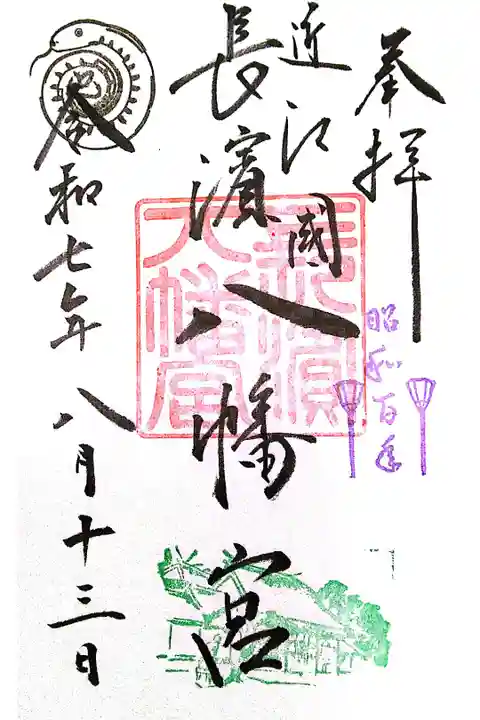 奉拝
昭和百年
近江國
長濱八幡宮
長濱
八幡宮
令和七年八月十三日